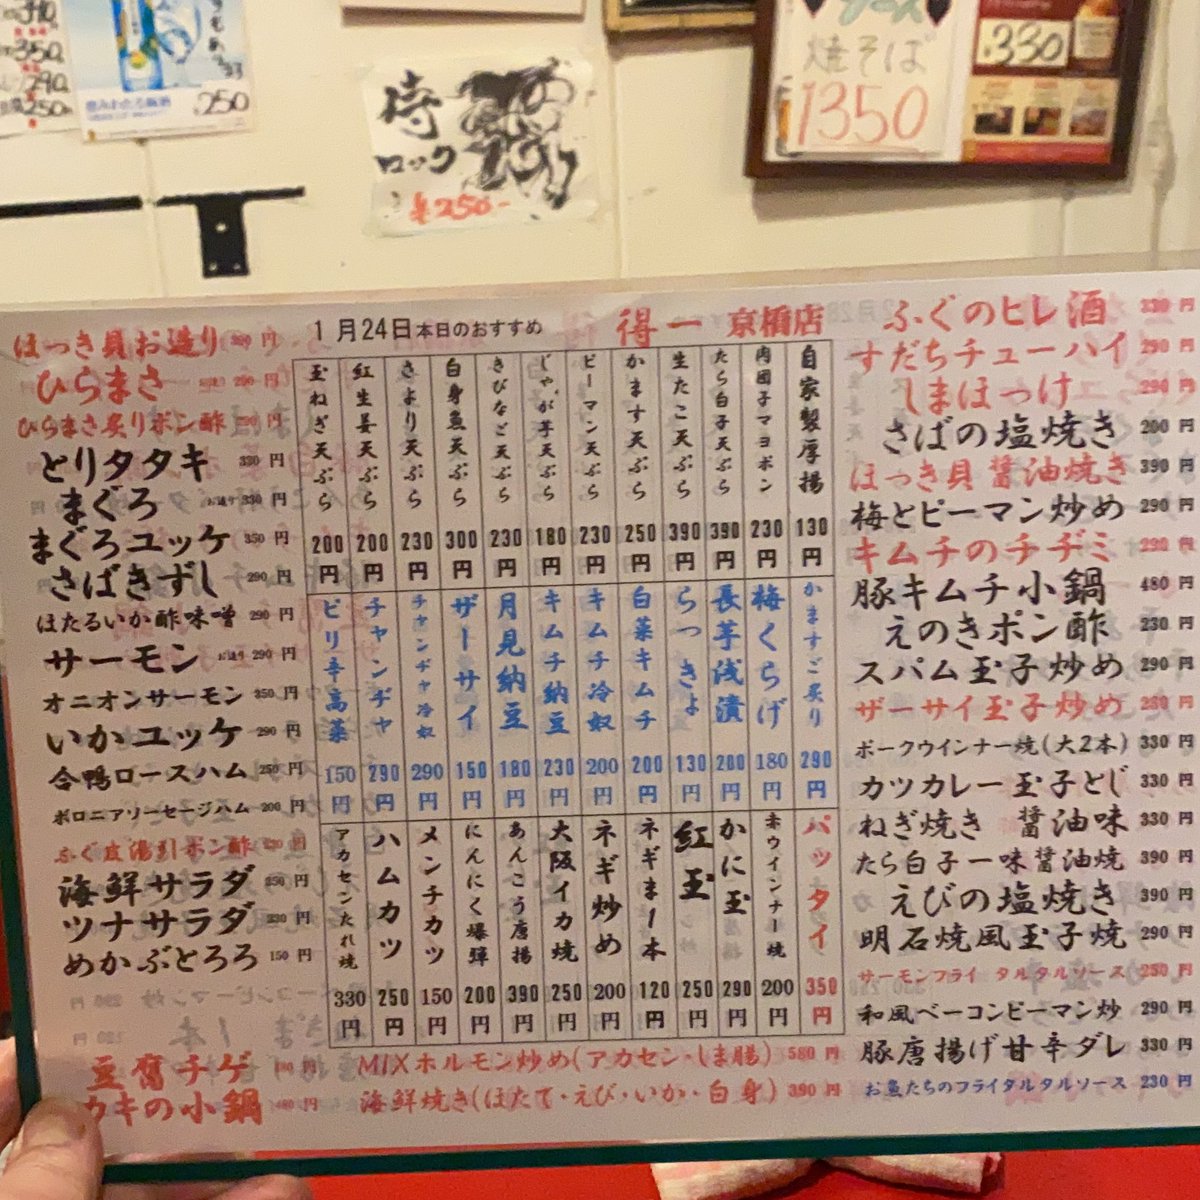 350
290
250
250
侍
ロック
¥250-
ソース
焼そば
1350
330
1月24日本日のおすすめ
得一 京橋店
ほっき貝お造り 円
ひらまさ 290円
ひらまさ炙りポン酢 円
とりタタキ 330円
まぐろ お造り 330円
まぐろユッケ 350円
さばきずし 290円
ほたるいか酢味噌 290円
サーモン お造り 290円
オニオンサーモン 350円
いかユッケ 290円
合鴨ロースハム 250円
ボロニアソーセージハム 200円
ふぐ皮湯引ポン酢 円
海鮮サラダ 円
ツナサラダ 円
めかぶとろろ 150円
豆腐チゲ 円
カキの小鍋 480円
自家製厚揚 130円
肉団子マヨポン 230円
たら白子天ぷら 390円
生たこ天ぷら 390円
かます天ぷら 250円
ピーマン天ぷら 230円
じゃが芋天ぷら 180円
きびなご天ぷら 230円
白身魚天ぷら 300円
きより天ぷら 230円
紅生姜天ぷら 200円
玉ねぎ天ぷら 200円
かますご炙り 290円
梅くらげ 180円
長芋浅漬 200円
らっきょ 130円
白菜キムチ 200円
キムチ冷奴 200円
キムチ納豆 230円
月見納豆 180円
ザーサイ 150円
チャンヂャ冷奴 290円
チャンヂャ 290円
ピリ辛高菜 150円
パッタイ 350円
赤ウインナー焼 200円
かに玉 290円
紅玉 250円
ネギま1本 120円
ネギ炒め 200円
大阪イカ焼 250円
あんこう唐揚 390円
にんにく爆弾 200円
メンチカツ 150円
ハムカツ 250円
アカセンたれ焼 330円
MIXホルモン炒め(アカセン・しま腸) 580円
海鮮焼き(ほたて・えび・いか・白身) 390円
ふぐのヒレ酒 330円
すだちチューハイ 290円
しまほっけ 290円
さばの塩焼き 200円
ほっき貝 醤油焼き 390円
梅とピーマン炒め 290円
キムチのチヂミ 290円
豚キムチ小鍋 480円
えのきポン酢 230円
スパム玉子炒め 290円
ザーサイ玉子炒め 230円
ポークウインナー焼(大2本) 330円
カツカレー玉子とじ 330円
ねぎ焼き 醤油味 330円
たら白子一味醤油焼 390円
えびの塩焼き 390円
明石焼風玉子焼 290円
サーモンフライ タルタルソース 250円
和風ベーコンピーマン炒 290円
豚唐揚げ甘辛ダレ 330円
お魚たちのフライタルタルソース 230円